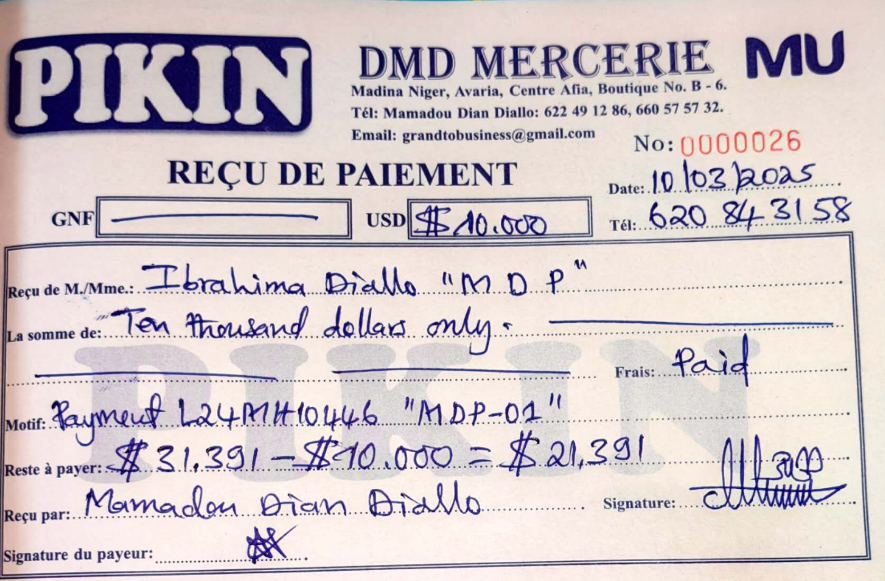 PIKIN
DMD MERCERIE MU
Madina Niger, Avaria, Centre Afia, Boutique No. B - 6.
Tél: Mamadou Dian Diallo: 622 49 12 86, 660 57 57 32.
Email: grandtobusiness@gmail.com
No: 0000026
REÇU DE PAIEMENT
Date: 10/03/2025
GNF USD $ 10.000
Tél: 620 84 31 58
Reçu de M./Mme.: Ibrahima Diallo "M D P"
La somme de: Ten thousand dollars only.
Frais: Paid
PIKIN
Motif: Payment L24MH10446 "MDP-01"
Reste à payer: $ 31,391 - $10.000 = $ 21,391
Reçu par: Mamadou Dian Diallo Signature:
Signature du payeur: